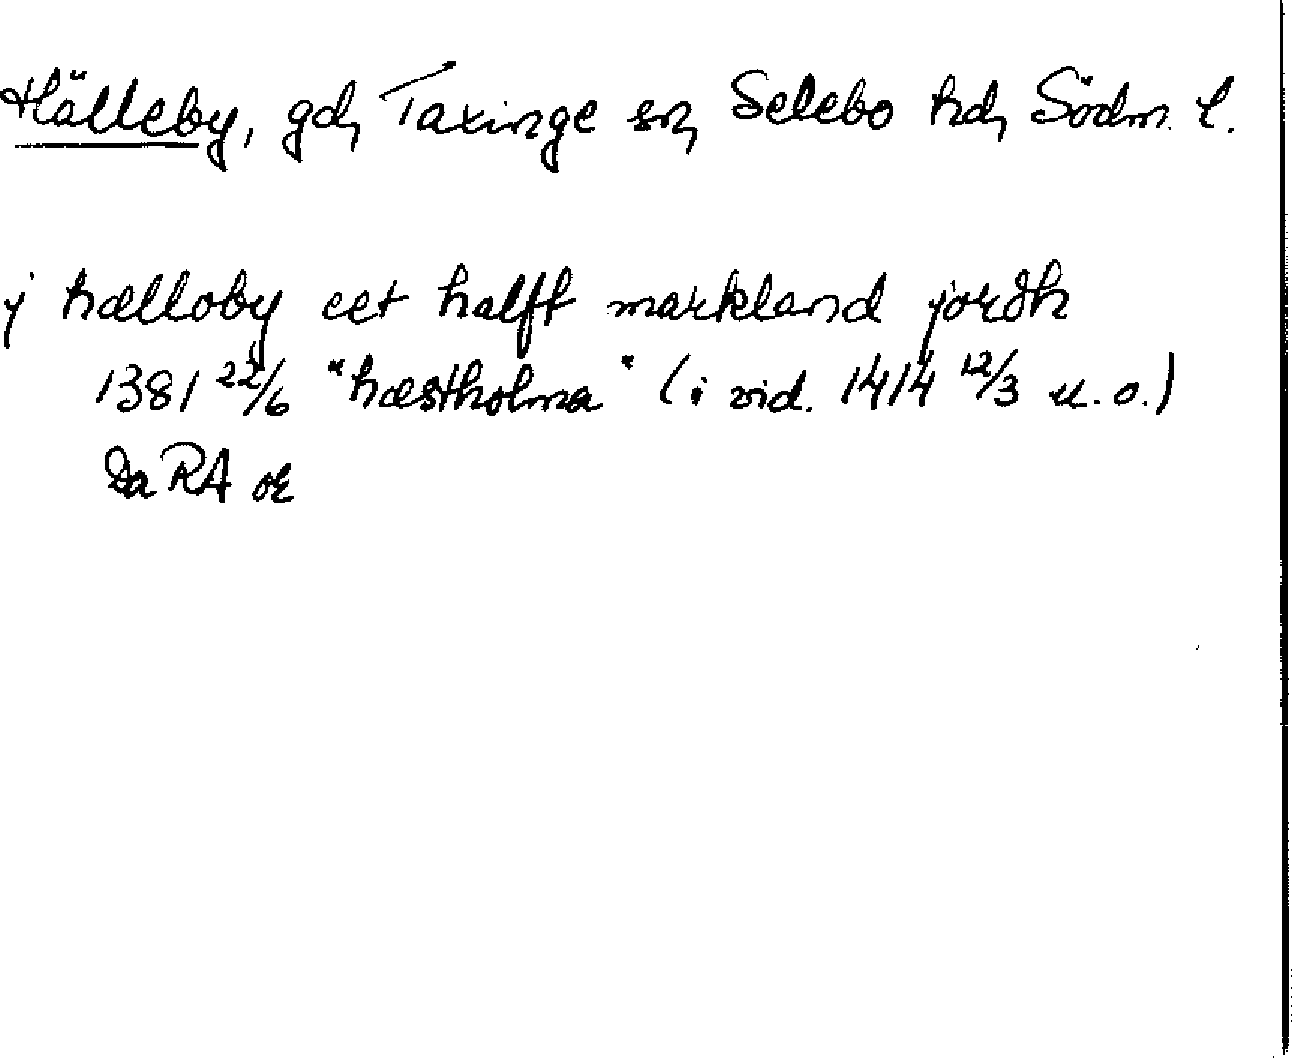 Hälleby, gd, Taxinge sn, Selebo hd, Södm. l.
j hælloby eet halfft markland jordh
1381 22/6 "hæstholma" (i vid. 1414 12/3 u.o.)
Da RA or